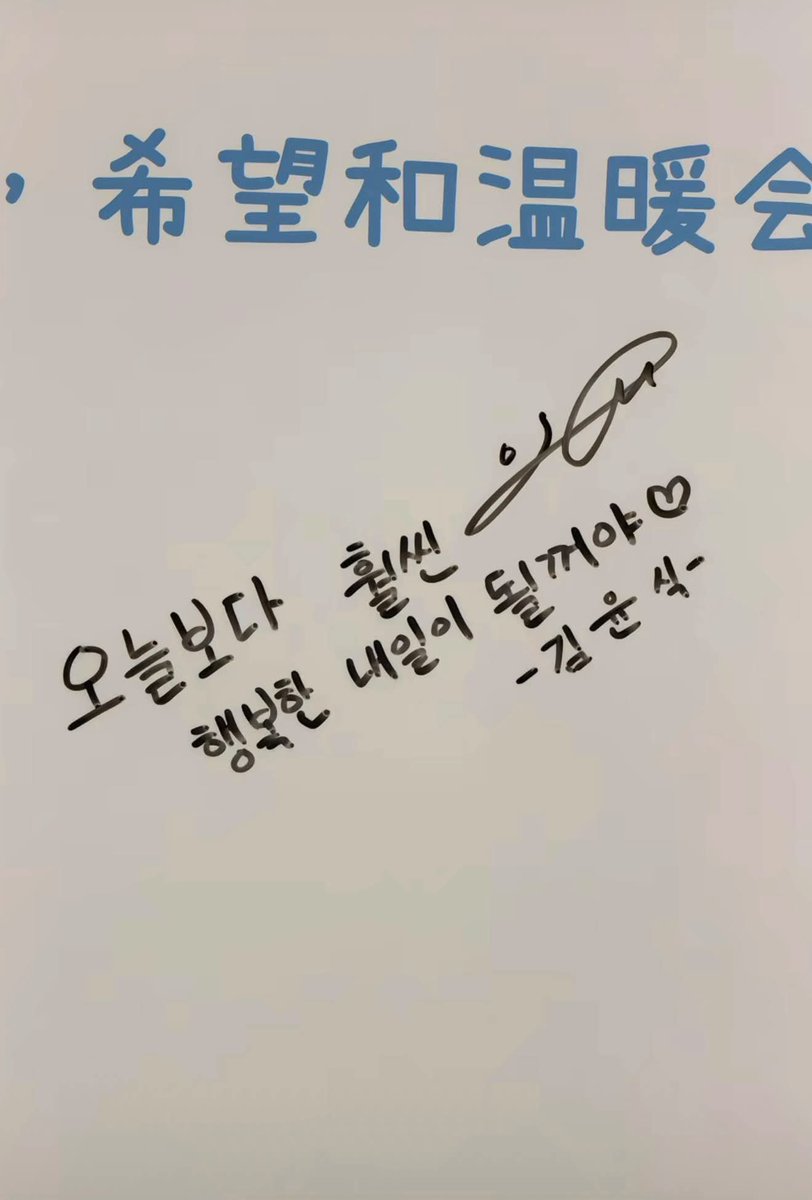 ，希望和温暖会
오늘보다 훨씬
행복한 내일이 될꺼야♡
-김윤식-